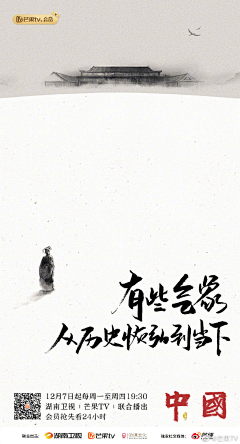 芒果tv 会员
有些气象
从历史恢弘到当下
12月7日起每周一至周四19:30
湖南卫视 | 芒果TV | 联合播出
会员抢先看24小时
中國
湖南卫视
芒果TV